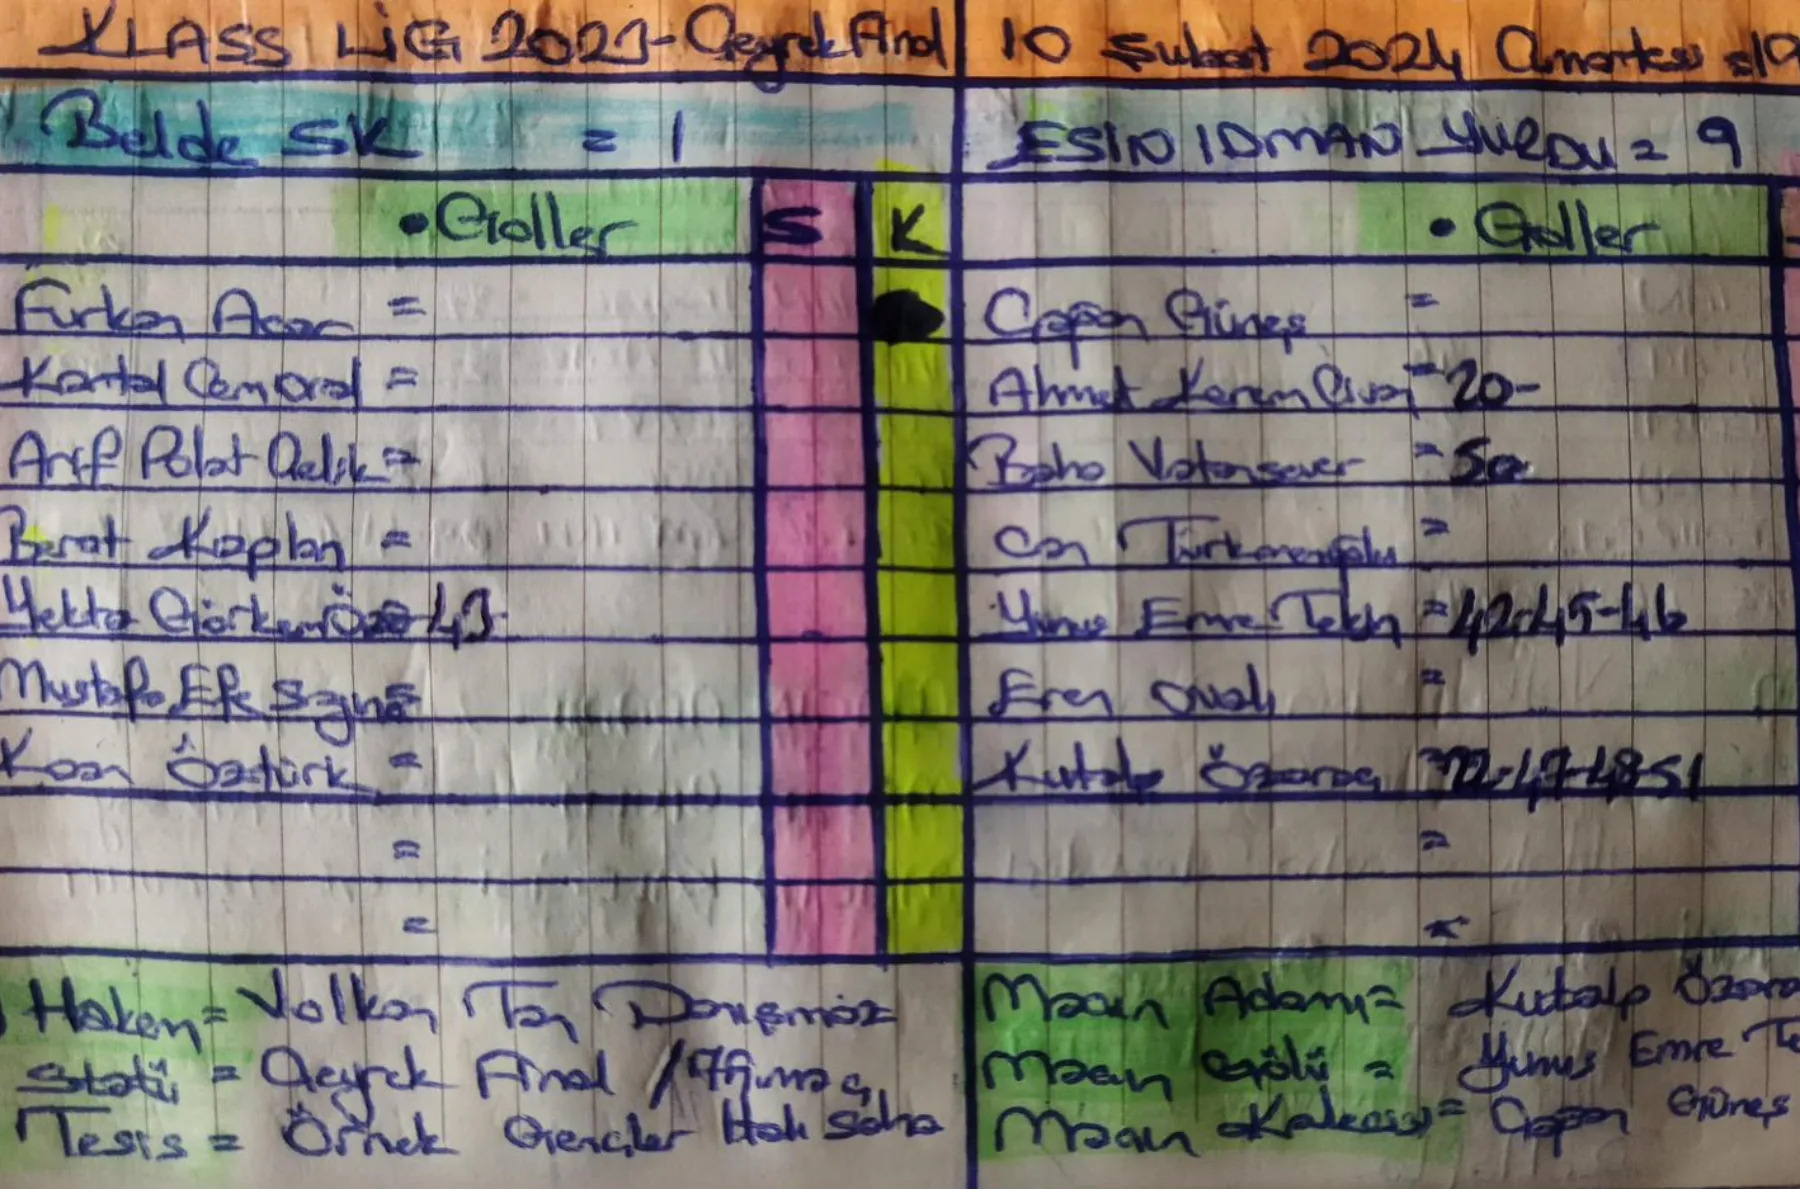 KLASS LİG 2023-Çeyrek Final
10 Şubat 2024 Cumartesi
Belde SK = 1
ESIN IDMAN YURDU = 9
• Goller S K
• Goller
Furkan Acar =
Kartal Cem Oral =
Arif Polat Çelik =
Berat Kaplan =
Yekta Görkem = 43-
Mustafa Efe =
Kaan Öztürk =
=
=
Çağan Güneş =
Ahmet Kerem = 20-
Baha Vatansever = 50
Can Türkmenoğlu =
Yunus Emre Tekin = 42-45-46
Eren Ovalı =
Kutalp Özaraç = 22-47-48-51
=
=
Hakem = Volkan Tan Danışmaz
Statü = Çeyrek Final / 7. maç
Tesis = Örnek Gençler Halı Saha
Maçın Adamı = Kutalp Özara
Maçın Golü = Yunus Emre Te
Maçın Kalecisi = Çağan Güneş